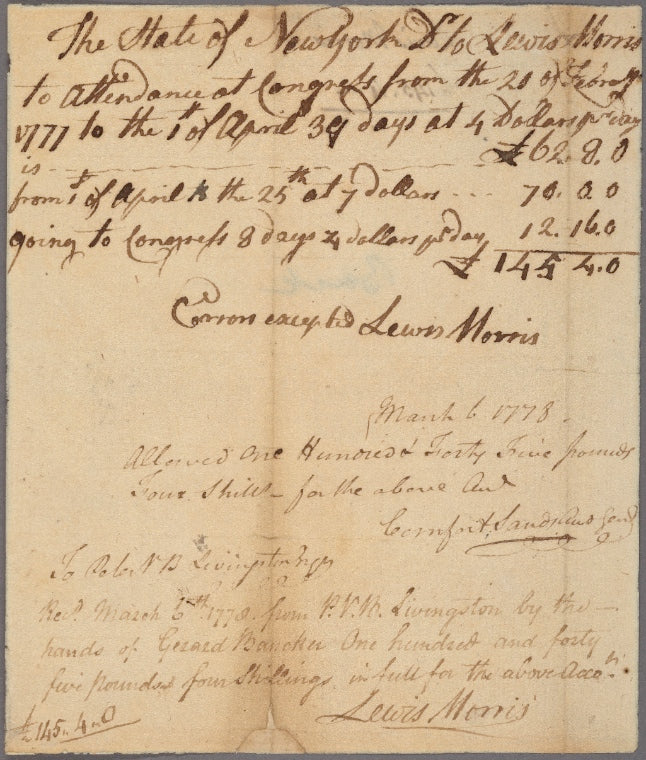 The State of New York Dr to Lewis Morris
to Attendance at Congress from the 20 of Febray
1777 to the 1st of April 39 days at 4 Dollars pr day
is £62. 8. 0
from 1st of April to the 25th at 7 dollars --- 70. 0. 0
going to Congress 8 days 4 dollars pr day 12. 16. 0
£ 145 4. 0
Errors excepted Lewis Morris
March 6 1778.
Allowed One Hundred & Forty Five pounds
Four Shills - for the above
Comfort Sands Aud Genl
To
Recd. March 6th. 1778. from P. V. B. Livingston by the
hands of Gerard Bancker One hundred and forty
five pounds four Shillings in full for the above Acct.
Lewis Morris
£145. 4. 0